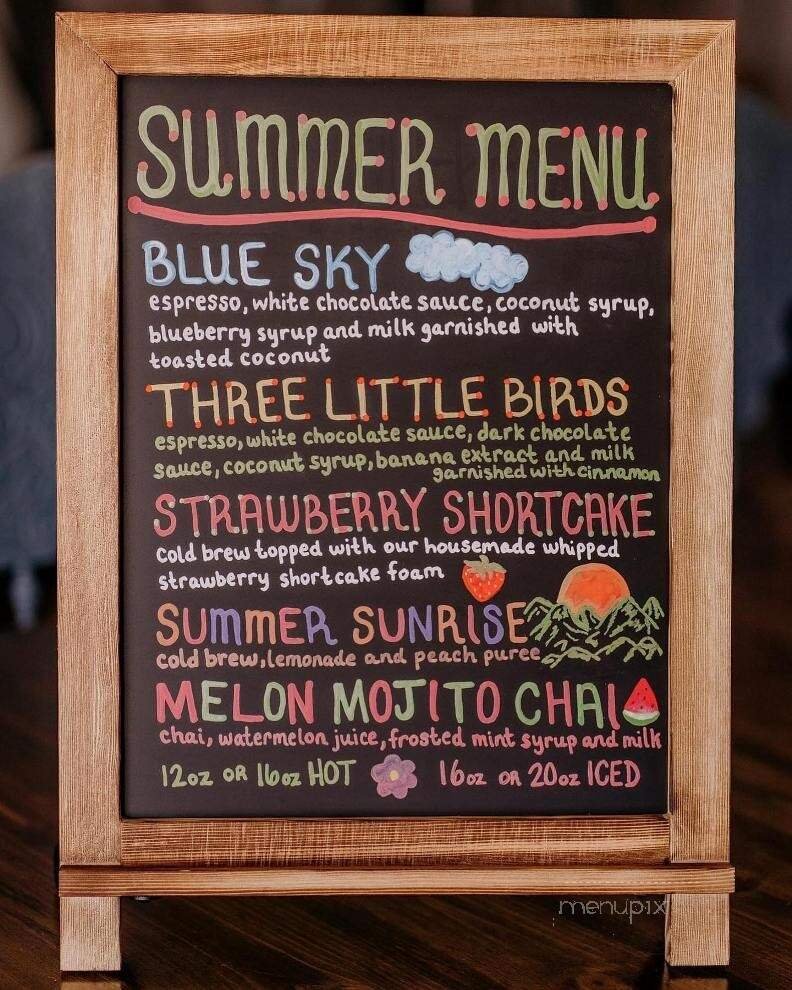 SUMMER MENU
BLUE SKY
espresso, white chocolate sauce, coconut syrup,
blueberry syrup and milk garnished with
toasted coconut
THREE LITTLE BIRDS
espresso, white chocolate sauce, dark chocolate
sauce, coconut syrup, banana extract and milk
garnished with cinnamon
STRAWBERRY SHORTCAKE
cold brew topped with our housemade whipped
strawberry shortcake foam
SUMMER SUNRISE
cold brew, lemonade and peach puree
MELON MOJITO CHAI
chai, watermelon juice, frosted mint syrup and milk
12oz OR 16oz HOT 16oz OR 20oz ICED
menupix